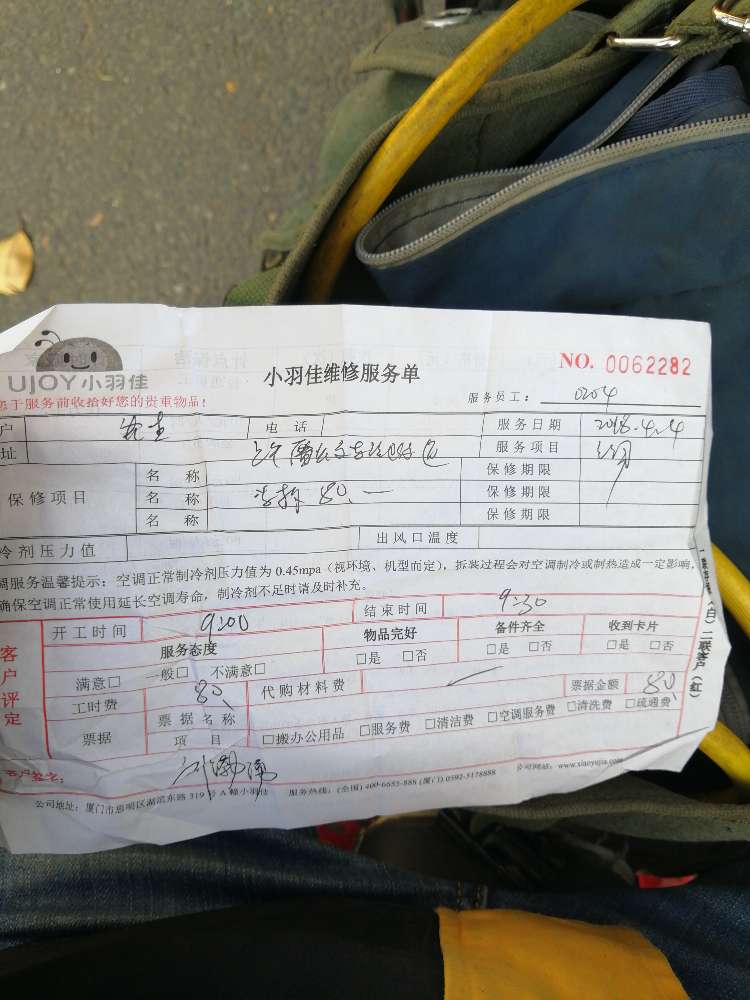 UJOY小羽佳
小羽佳维修服务单
NO. 0062282
您于服务前收拾好您的贵重物品!
服务员工: 0204
户 电 话 服务日期 2018.4.4
址 服务项目
保修项目 名 称 保修期限
名 称 80.— 保修期限
名 称 保修期限
冷剂压力值 出风口温度
调服务温馨提示:空调正常制冷剂压力值为 0.45mpa(视环境、机型而定),拆装过程会对空调制冷或制热造成一定影响,
确保空调正常使用延长空调寿命,制冷剂不足时请及时补充。
开工时间 9:00 结束时间 9:30
客户评定
服务态度 物品完好 备件齐全 收到卡片
满意□ 一般□ 不满意□ □是 □否 □是 □否 □是 □否
工时费 80 代购材料费 票据金额 80
票据 票据名称 项 目 □搬办公用品 □服务费 □清洁费 □空调服务费 □清洗费 □疏通费
客户签名:
公司地址:厦门市思明区湖滨东路 319 号 A 幢小羽佳 服务热线:(全国) 400-6655-886 (厦门) 0592-5178888 公司网站:www.xiaoyujia.com
(白) 二联客户 (红)